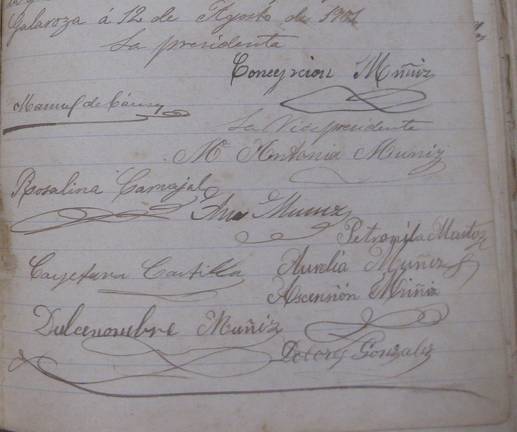 Galaroza á 12 de Agosto de 1901
La presidenta
Concepcion Muñiz
Manuel de
La Vicepresidenta
Mª Antonia Muñiz
Rosalina Carvajal
Ana Muñiz
Petronila Muñoz
Cayetana Castilla
Aurelia Muñiz
Ascensión Muñiz
Dulcenombre Muñiz
Dolores Gonzalez